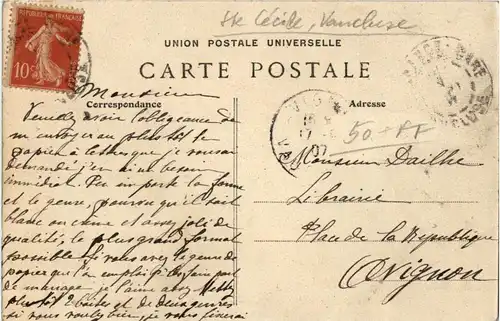 Ste Cécile, Vaucluse
UNION POSTALE UNIVERSELLE
CARTE POSTALE
Correspondance
Adresse
10
50
Monsieur
Veuillez avoir l'obligeance de
m'envoyer au plus tôt le
papier à lettres que je vous ai
demandé j'en ai besoin
immédiat. Peu importe la forme
et le genre, pourvu qu'il soit
blanc ou crème et assez joli de
qualité, le plus grand format
possible. Si vous avez le genre de
papier que l'on emploie faire part
de mariage je l'aime assez. Mettez
plutôt 2 boîtes et de deux genres
si vous voulez bien, je vous serai
Monsieur Dailhe
Librairie
Place de la République
Avignon